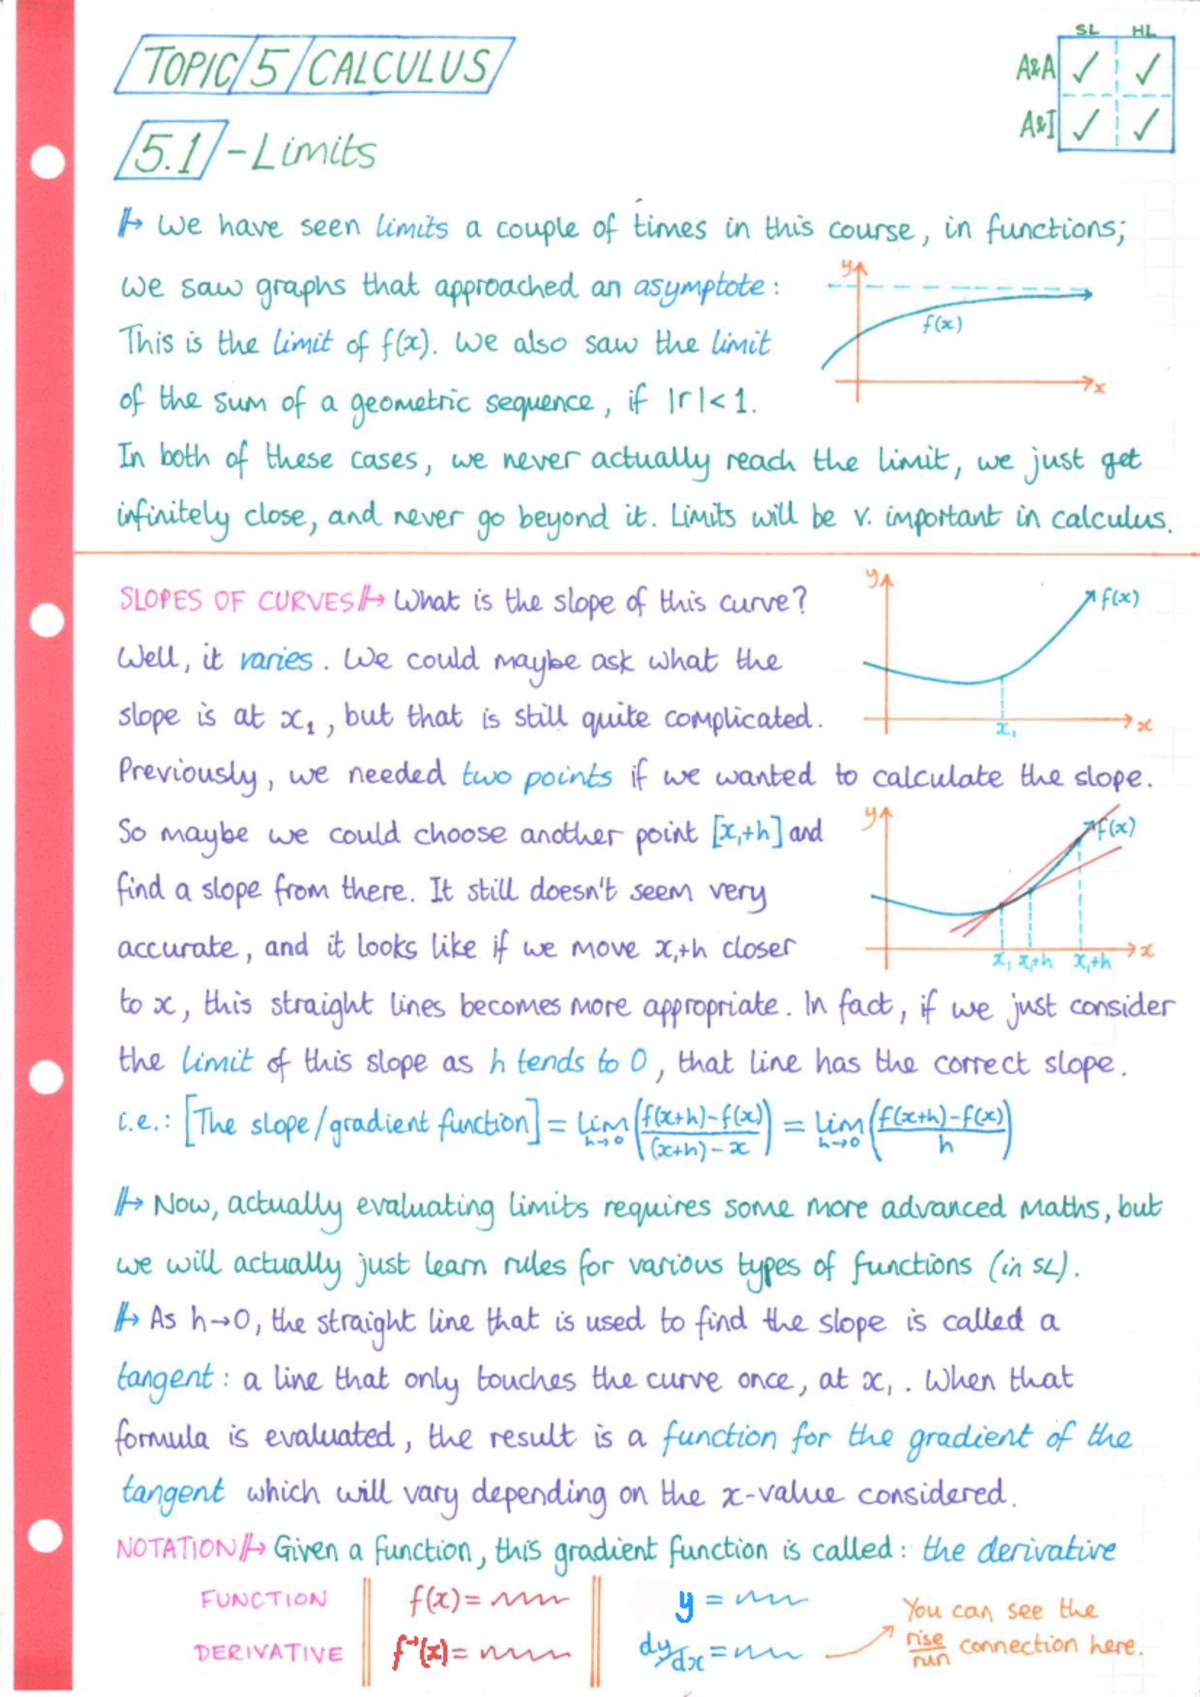 TOPIC 5 CALCULUS
SL HL
A&A ✓ ✓
A&I ✓ ✓
5.1 - Limits
We have seen limits a couple of times in this course, in functions;
we saw graphs that approached an asymptote:
This is the limit of f(x). We also saw the limit
of the sum of a geometric sequence, if |r|<1.
y
f(x)
x
In both of these cases, we never actually reach the limit, we just get
infinitely close, and never go beyond it. Limits will be v. important in calculus.
SLOPES OF CURVES What is the slope of this curve?
Well, it varies. We could maybe ask what the
slope is at x₁, but that is still quite complicated.
y
f(x)
x₁
x
Previously, we needed two points if we wanted to calculate the slope.
So maybe we could choose another point [x₁+h] and
find a slope from there. It still doesn't seem very
accurate, and it looks like if we move x₁+h closer
y
f(x)
x₁ x₁+h x₁+h
x
to x, this straight lines becomes more appropriate. In fact, if we just consider
the limit of this slope as h tends to 0, that line has the correct slope.
i.e.: [The slope/gradient function] = lim h→0 (f(x+h)-f(x) / (x+h)-x) = lim h→0 (f(x+h)-f(x) / h)
Now, actually evaluating limits requires some more advanced maths, but
we will actually just learn rules for various types of functions (in SL).
As h→0, the straight line that is used to find the slope is called a
tangent: a line that only touches the curve once, at x₁. When that
formula is evaluated, the result is a function for the gradient of the
tangent which will vary depending on the x-value considered.
NOTATION Given a function, this gradient function is called: the derivative
FUNCTION f(x)= y =
DERIVATIVE f⁻¹(x)= dy/dx =
You can see the
rise/run connection here.